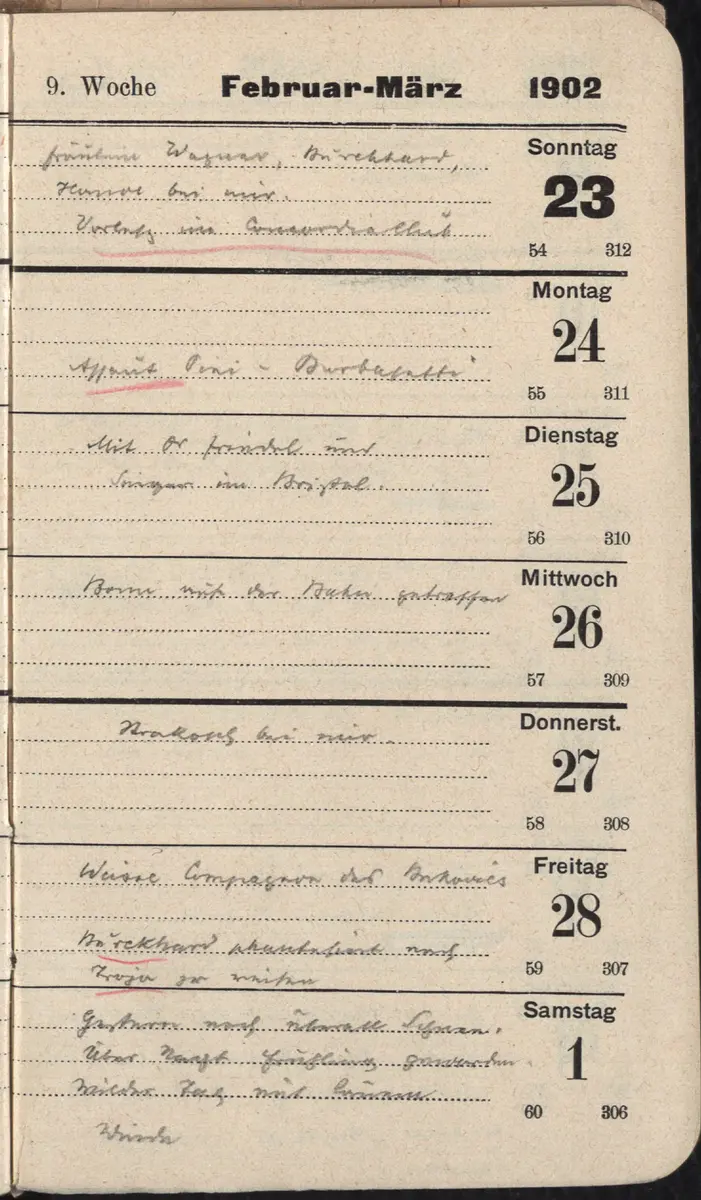 9. Woche Februar-März 1902
Fräulein Wagner, Burckhard,
bei mir.
Vorlesg im Concordiaclub
Sonntag
23
54 312
Assaut Pini - Barbasetti
Montag
24
55 311
Mit Dr Friedel und
Singer im Bristol.
Dienstag
25
56 310
mit der Bahn getroffen
Mittwoch
26
57 309
Strakosch bei mir.
Donnerst.
27
58 308
Weisse Compagnon des Bukovics
Burckhard phantasiert nach
Troja zu reisen
Freitag
28
59 307
Gestern noch überall Schnee.
Über Nacht Frühling geworden.
Wilder Tag mit lauem
Winde
Samstag
1
60 306